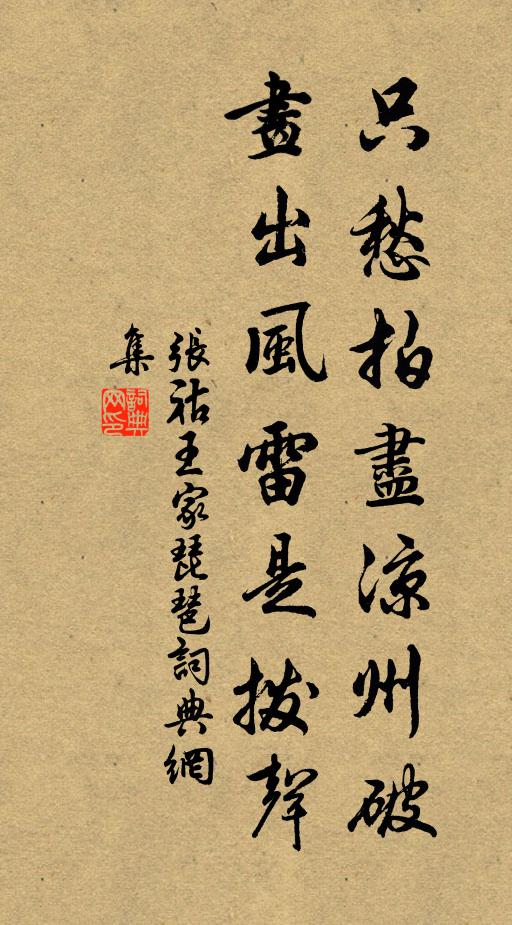 只愁拍盡涼州破
畫出風雷是撥聲
張祜王家琵琶詞典網
集
詞典網印